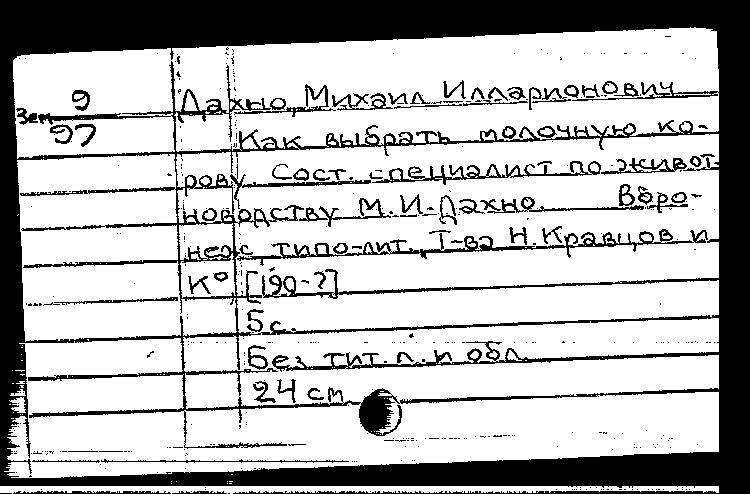 9
Зем 97
Дахно, Михаил Илларионович
Как выбрать молочную ко-
рову. Сост. специалист по живот-
новодству М.И. Дахно. Воро-
неж, типо-лит. Т-ва Н. Кравцов и
К° [190-?]
5 с.
Без тит. л. и обл.
24 см